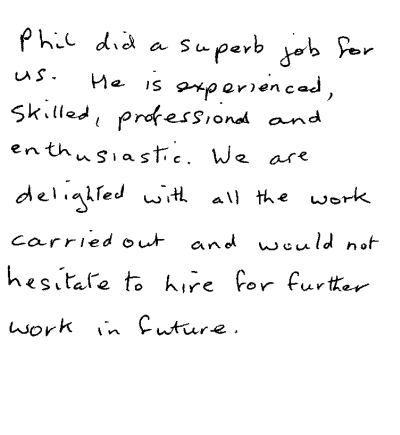 Phil did a superb job for
us. He is experienced,
skilled, professional and
enthusiastic. We are
delighted with all the work
carried out and would not
hesitate to hire for further
work in future.